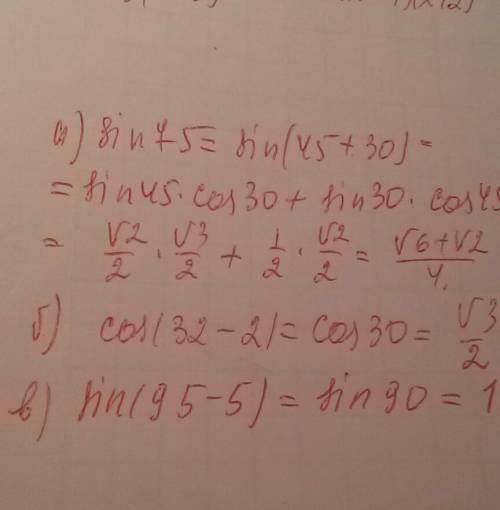 а) sin75 = sin(45+30) =
= sin45·cos30 + sin30·cos45
= √2/2 · √3/2 + 1/2 · √2/2 = √6+√2/4
б) cos(32-2) = cos30 = √3/2
в) sin(95-5) = sin90 = 1